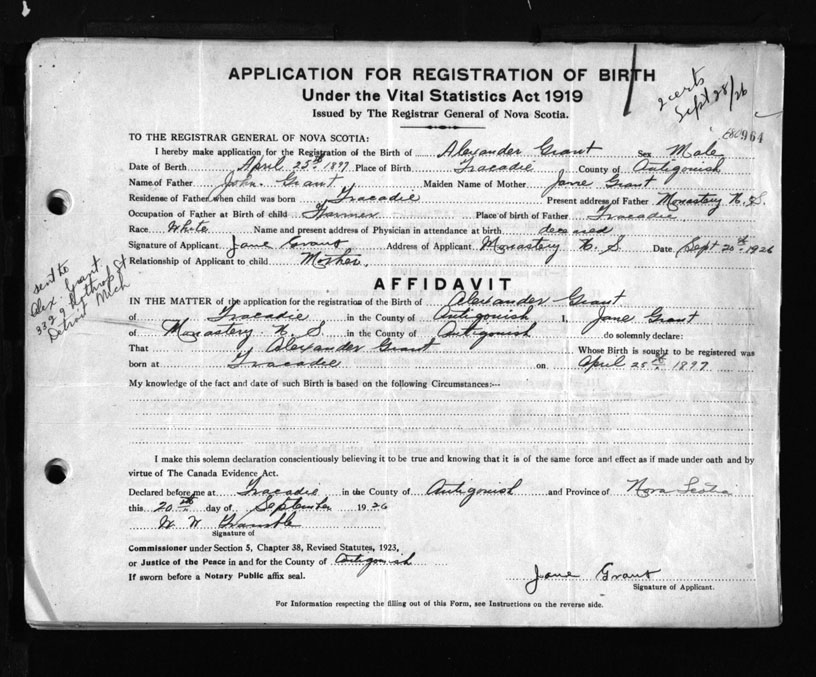 APPLICATION FOR REGISTRATION OF BIRTH
Under the Vital Statistics Act 1919
Issued by The Registrar General of Nova Scotia.
2 certs
Sept 28/26
964
TO THE REGISTRAR GENERAL OF NOVA SCOTIA:
I hereby make application for the Registration of the Birth of Alexander Grant Sex Male
Date of Birth April 25th 1897 Place of Birth Tracadie County of Antigonish
Name of Father John Grant Maiden Name of Mother Jane Grant
Residence of Father when child was born Tracadie Present address of Father Monastery N.S.
Occupation of Father at Birth of child Farmer Place of birth of Father Tracadie
Race White Name and present address of Physician in attendance at birth deceased
Signature of Applicant Jane Grant Address of Applicant Monastery N.S. Date Sept 20th 1926
Relationship of Applicant to child Mother.
sent to
Alex. Grant
St
Detroit Mich
AFFIDAVIT
IN THE MATTER of the application for the registration of the Birth of Alexander Grant
of Tracadie in the County of Antigonish I, Jane Grant
of Monastery N.S in the County of Antigonish do solemnly declare:
That Alexander Grant Whose Birth is sought to be registered was
born at Tracadie on April 25th 1897
My knowledge of the fact and date of such Birth is based on the following Circumstances:--
I make this solemn declaration conscientiously believing it to be true and knowing that it is of the same force and effect as if made under oath and by
virtue of The Canada Evidence Act.
Declared before me at Tracadie in the County of Antigonish and Province of Nova Scotia
this 20th day of September 1926
W W
Signature of
Commissioner under Section 5, Chapter 38, Revised Statutes, 1923,
or Justice of the Peace in and for the County of Antigonish
If sworn before a Notary Public affix seal.
Jane Grant
Signature of Applicant.
For Information respecting the filling out of this Form, see Instructions on the reverse side.